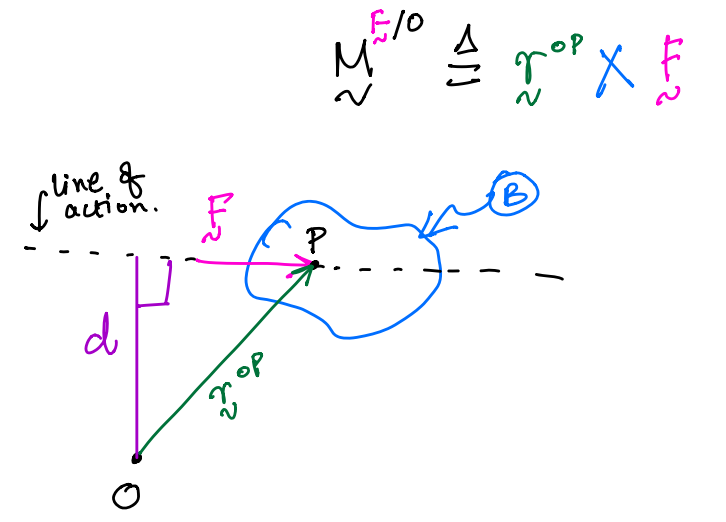 M^F/O ≜ r^OP × F
line of
action.
F
P
B
d
r^OP
O